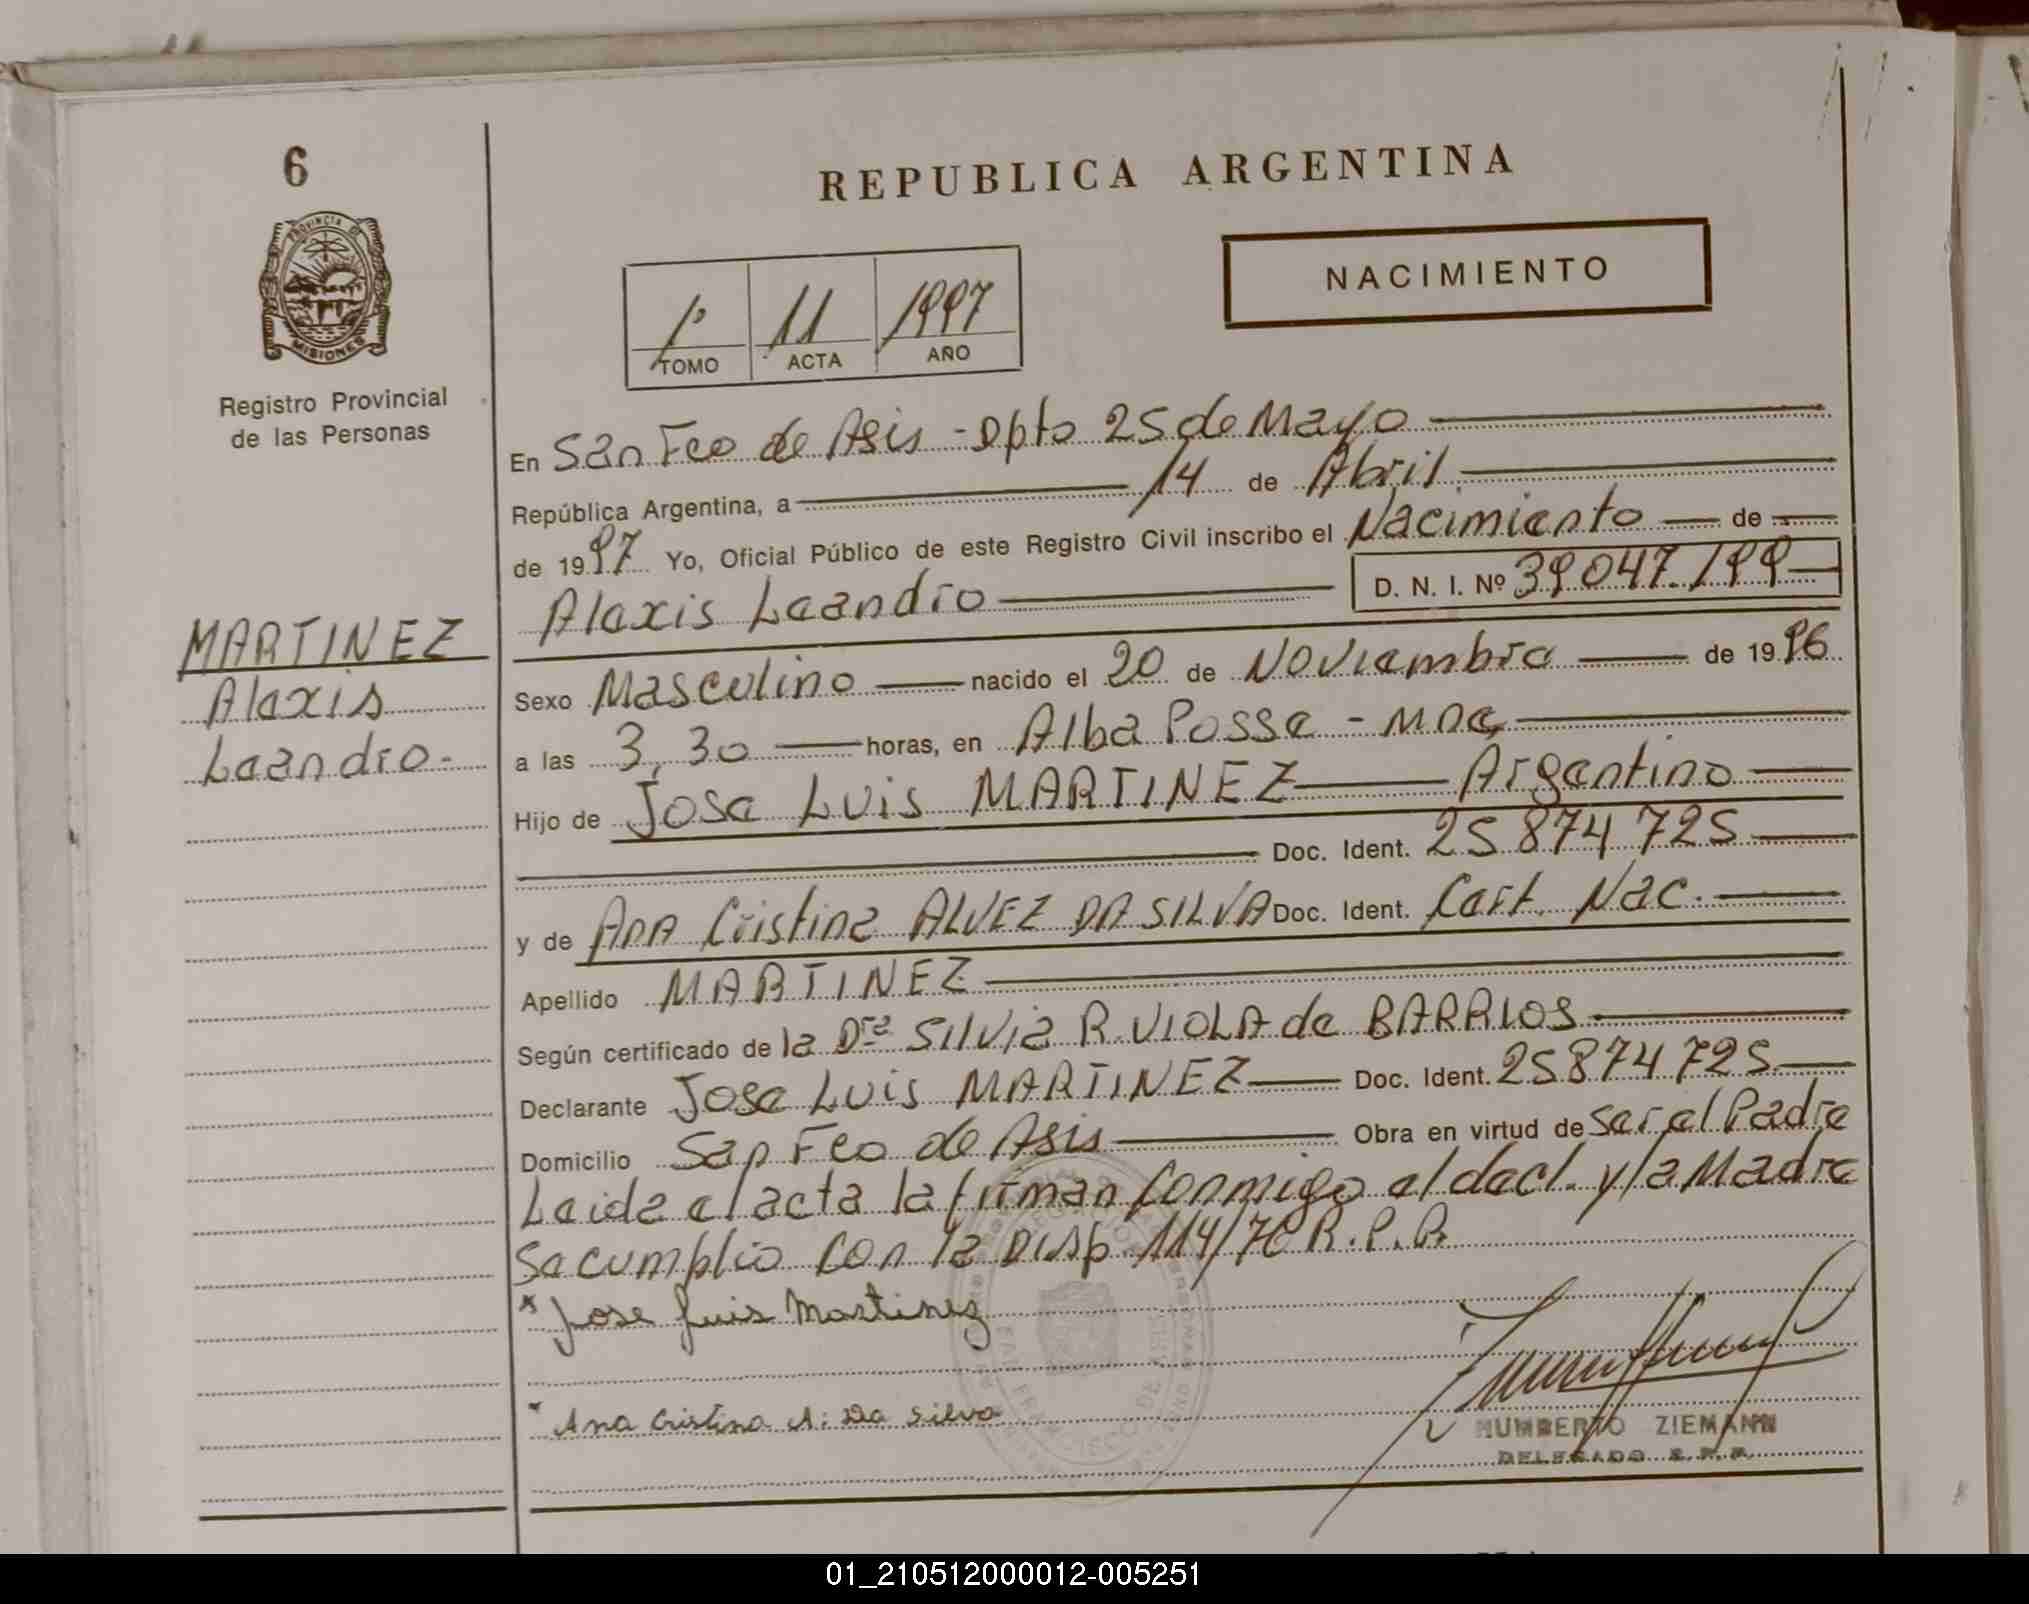 6
REPUBLICA ARGENTINA
PROVINCIA DE
MISIONES
NACIMIENTO
1º 11 1997
TOMO ACTA AÑO
Registro Provincial
de las Personas
En San Fco de Asis - Dpto 25 de Mayo
República Argentina, a 14 de Abril
de 1997 Yo, Oficial Público de este Registro Civil inscribo el Nacimiento de
Alexis Leandro D. N. I. Nº 39047199
MARTINEZ
Alexis
Leandro-
Sexo Masculino nacido el 20 de Noviembre de 1996
a las 3,30 horas, en Alba Posse - Mnes
Hijo de Jose Luis MARTINEZ Argentino
Doc. Ident. 25874725
y de Ana Cristina ALVEZ DA SILVA Doc. Ident. Cert. Nac.
Apellido MARTINEZ
Según certificado de la Dra SILVIA R. VIOLA de BARRIOS
Declarante Jose Luis MARTINEZ Doc. Ident. 25874725
Domicilio San Fco de Asis Obra en virtud de ser el Padre
Leida el acta la firman conmigo el decl. y la Madre
se cumplio con la Disp. 114/76 R.P.P.
* Jose Luis Martinez
* Ana Cristina A. Da Silva
HUMBERTO ZIEMANN
DELEGADO R.P.P.
01_210512000012-005251